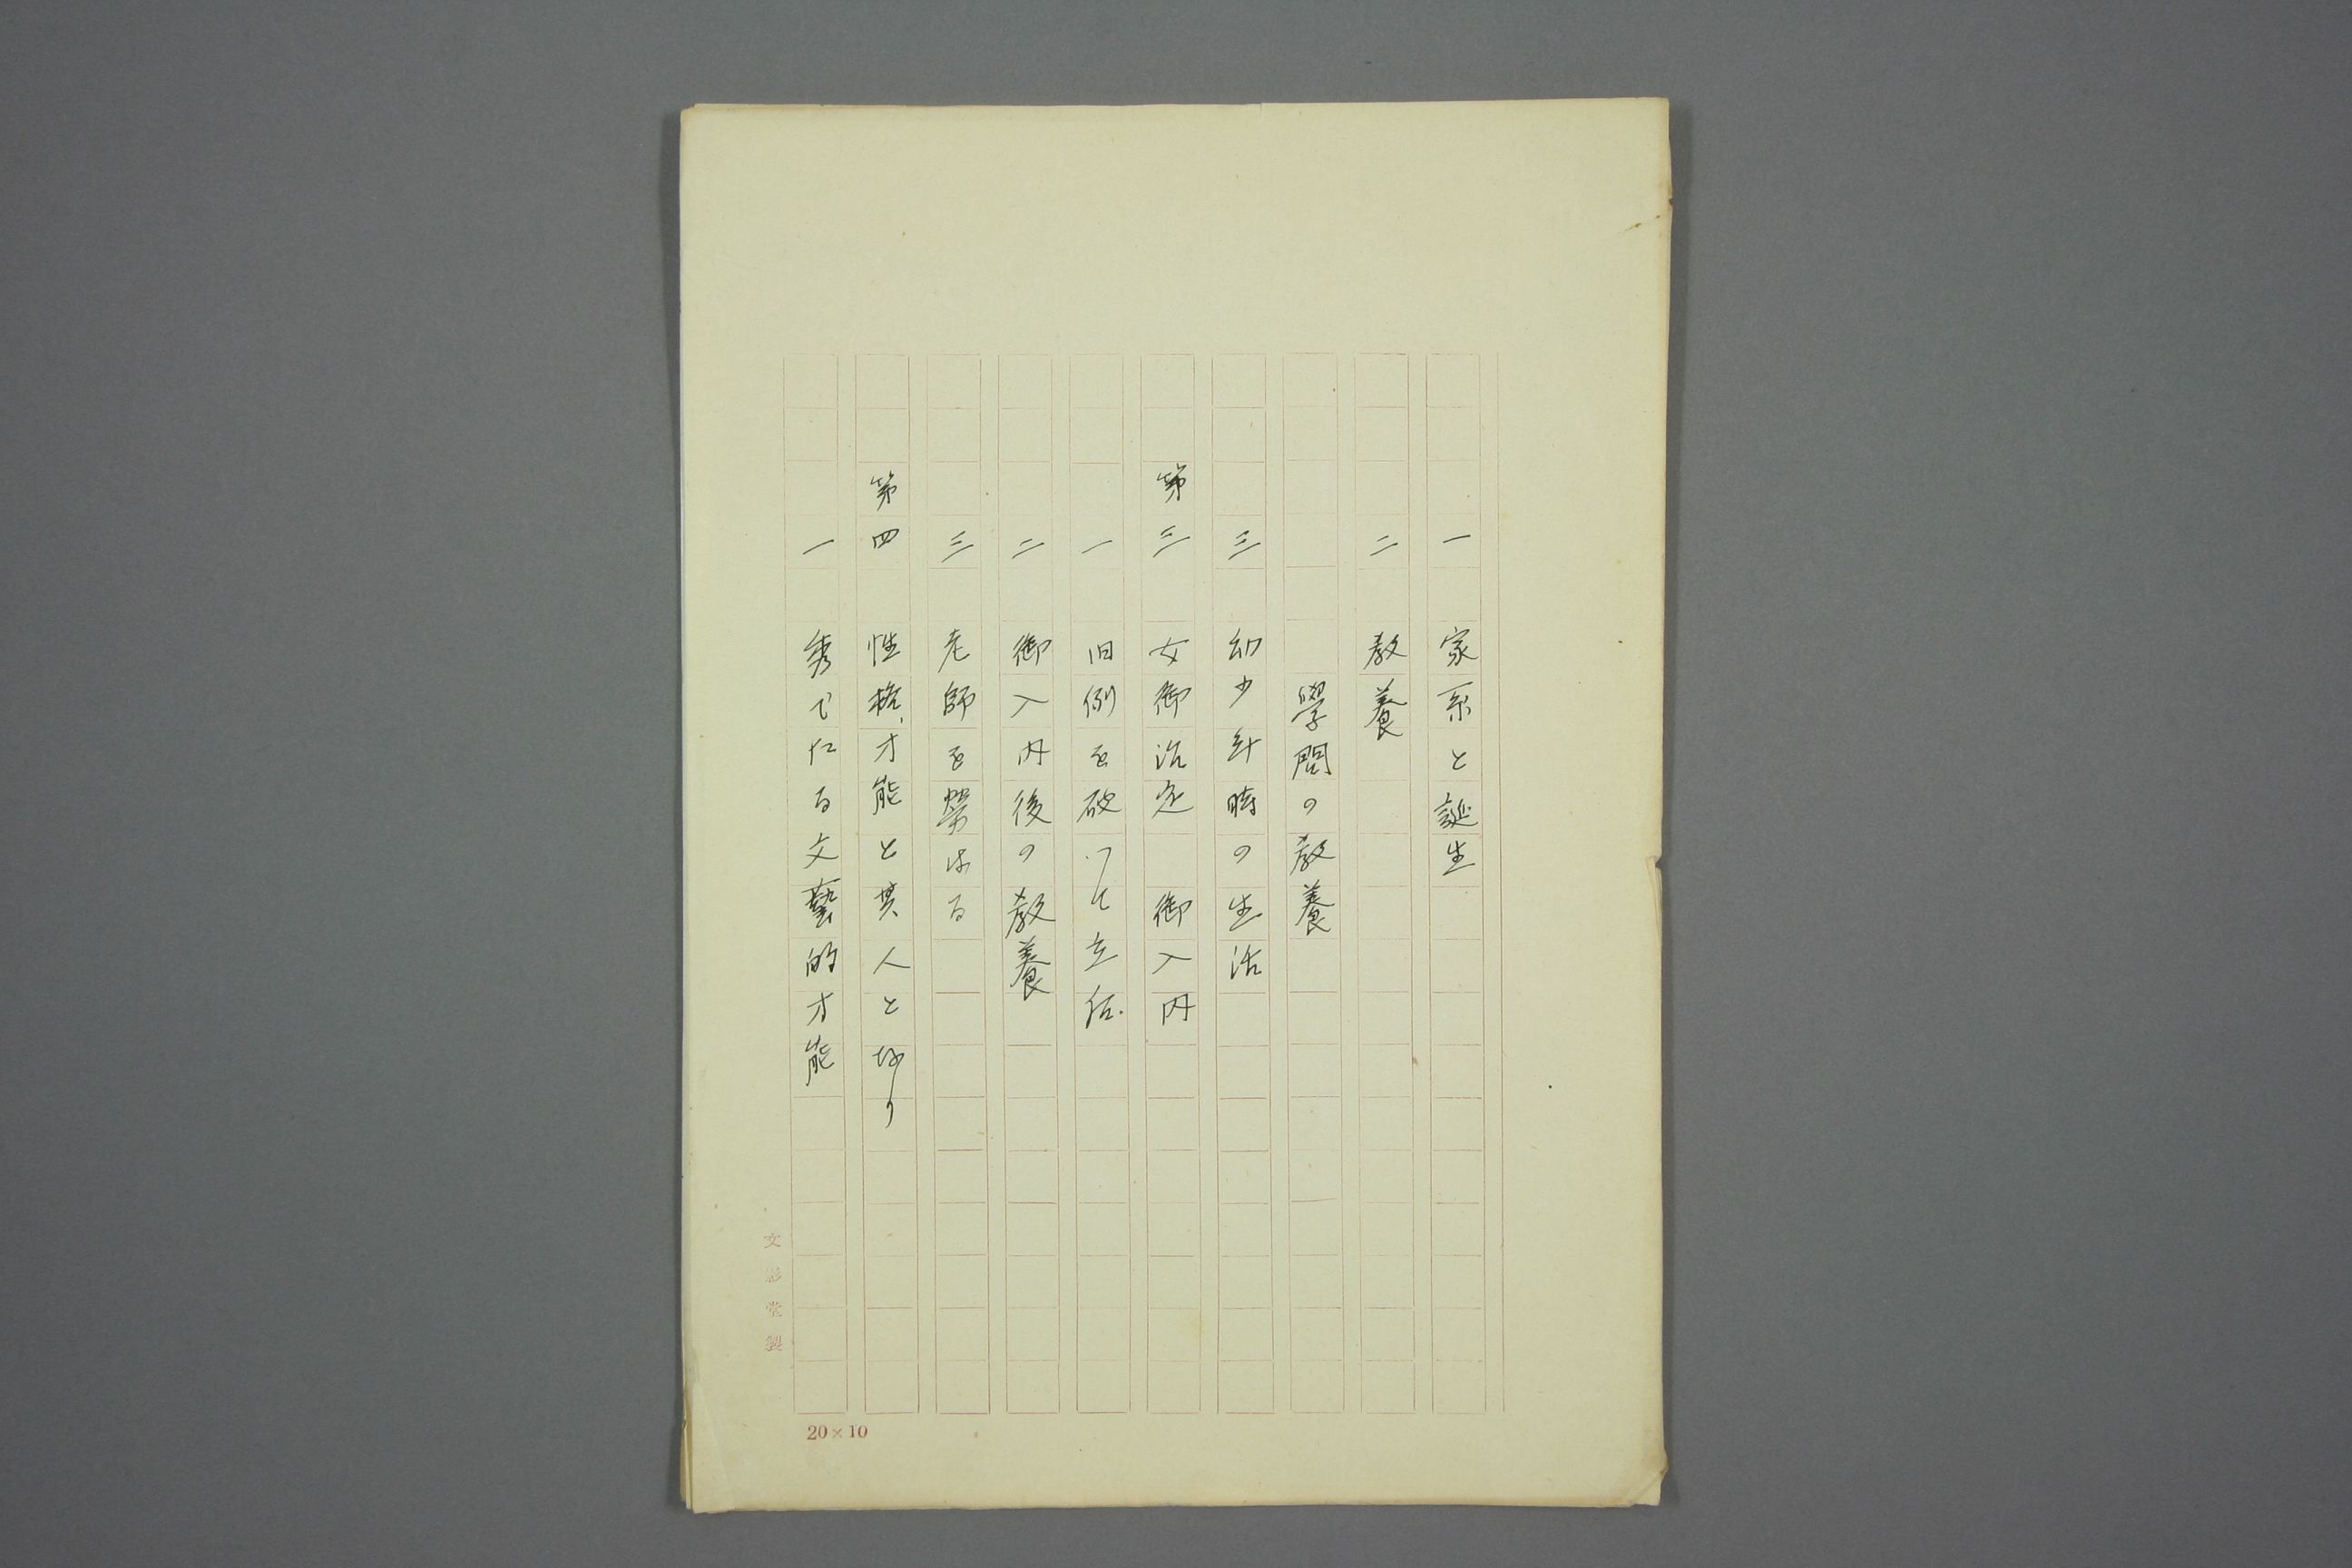 一　家系と誕生
二　教養
學問の教養
三　幼少年時の生活
第三　女御治定　御入内
一　旧例を破つて立后
二　御入内後の教養
三　老師を勞はる
第四　性格、才能と其人となり
一　秀でたる文藝的才能
文
堂製
20×10